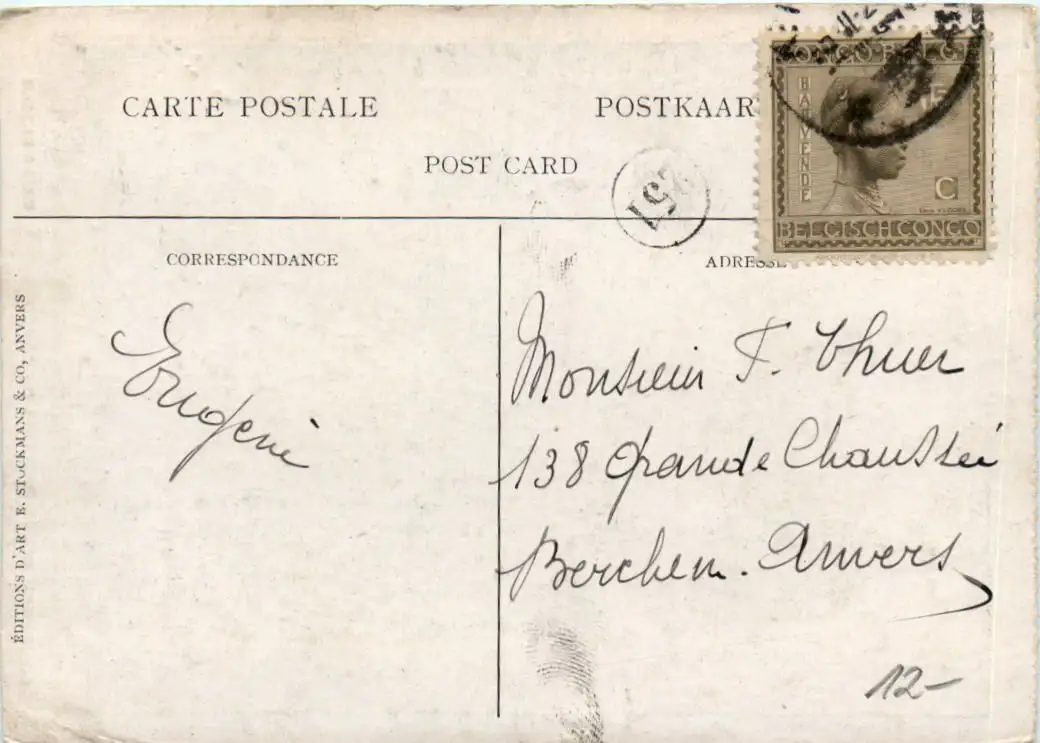 CARTE POSTALE
POSTKAAR
POST CARD
CONGO BELGE
BAKVENDE
15
C
BELGISCH CONGO
251
CORRESPONDANCE
ADRESSE
ÉDITIONS D'ART E. STOCKMANS & CO, ANVERS
Eugénie
Monsieur F. Thuer
138 Grande Chaussée
Berchem. Anvers
12-